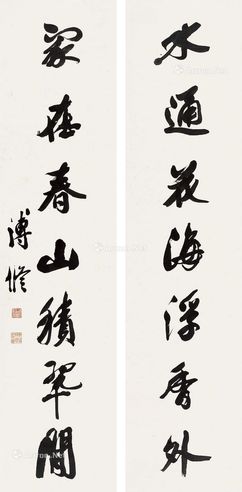 水通花海浮香外
家在春山積翠間
溥儒